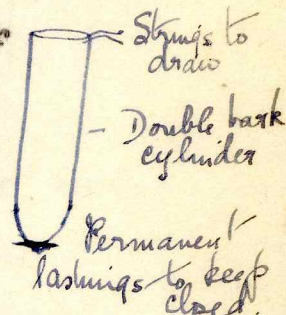 Strings to
draw
Double bark
cylinder
Permanent
lashings to keep
closed.